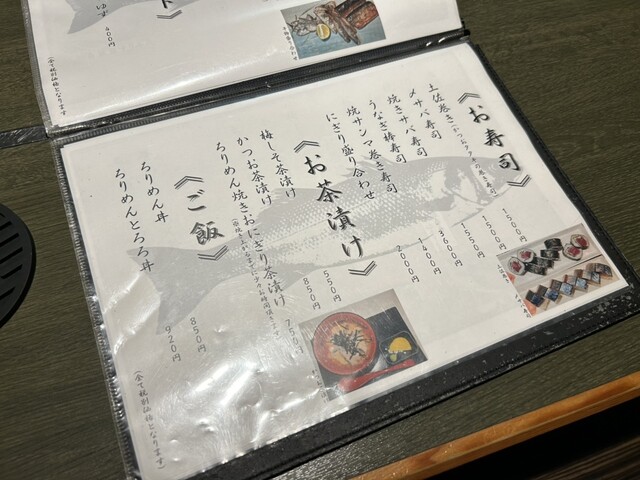 ト》
ゆず 400円
(全て税別価格となります)
《お寿司》
土佐巻き(かつおのタタキの巻き寿司) 1500円
メサバ寿司 1500円
焼きサバ寿司 1550円
うなぎ棒寿司 3600円
焼サンマ巻き寿司 1400円
にぎり盛り合わせ 2000円
《お茶漬け》
梅しそ茶漬け 550円
かつお茶漬け 850円
ちりめん焼きおにぎり茶漬け 750円
《ご飯》
ちりめん丼 850円
ちりめんとろろ丼 920円
(全て税別価格となります)